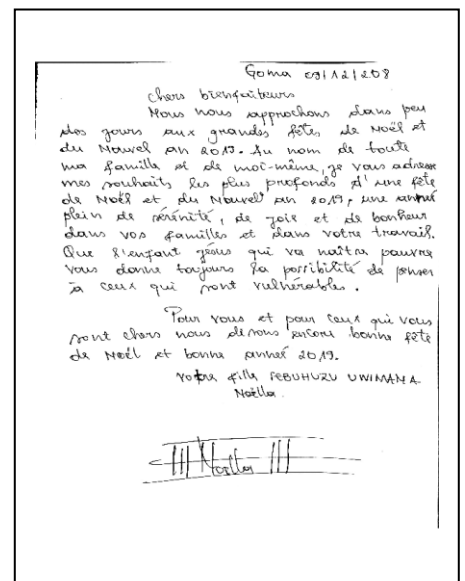 Goma 09/12/208
chers bienfaiteurs
Nous nous approchons dans peu
des jours aux grandes fêtes de Noël et
du Nouvel an 2019. Au nom de toute
ma famille et de moi-même, je vous adresse
mes souhaits les plus profonds d'une fête
de Noël et du Nouvel an 2019, une année
plein de sérénité, de joie et de bonheur
dans vos familles et dans votre travail.
Que l'enfant jésus qui va naître pauvre
vous donne toujours la possibilité de penser
à ceux qui sont vulnérables.
Pour vous et pour ceux qui vous
sont chers nous disons encore bonne fête
de Noël et bonne année 2019.
votre fille SEBUHUZU UWIMANA
Noëlla.
Noëlla